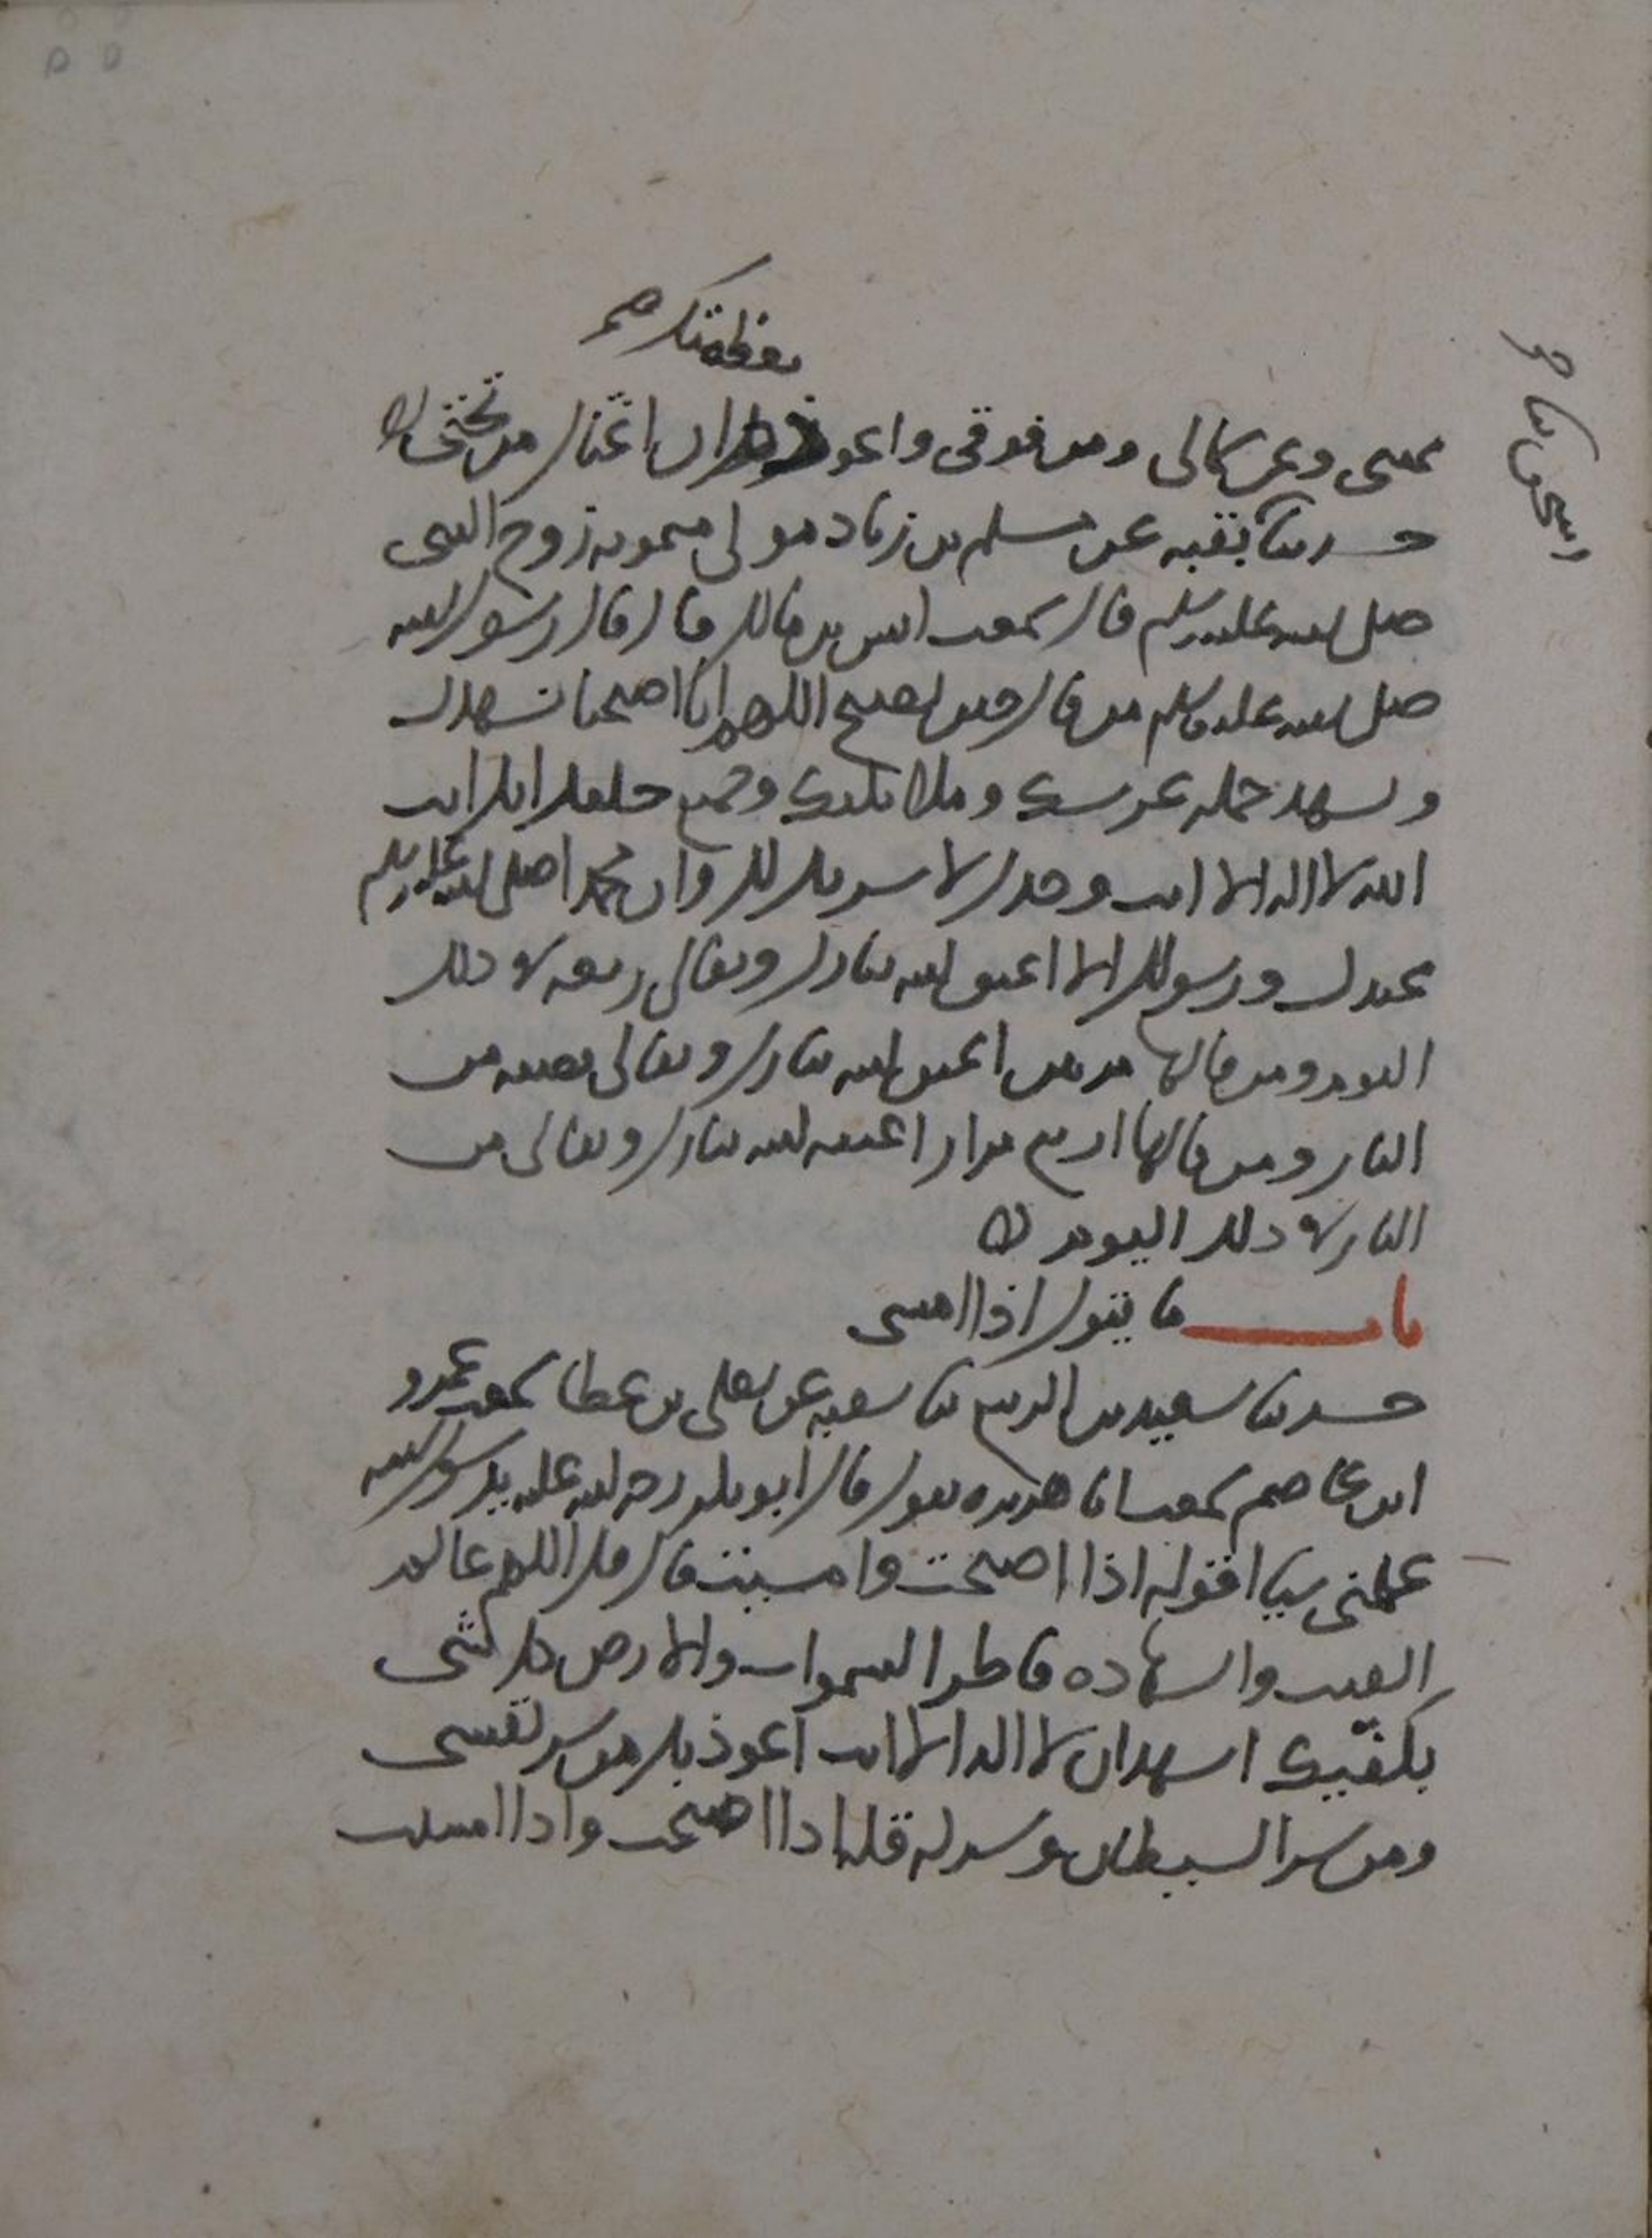 بعظمتك صح
يميني وعن شمالي ومن فوقي واعوذ ان اغتال من تحتي
اسحق ثنا
حدثنا بقية عن مسلم بن زياد مولى ميمونة زوج النبي
صلى الله عليه وسلم قال سمعت انس بن مالك قال قال رسول الله
صلى الله عليه وسلم من قال حين يصبح اللهم انا اصبحنا نشهدك
ونشهد حملة عرشك وملائكتك وجميع خلقك انك انت
الله لا اله الا انت وحدك لا شريك لك وان محمدا صلى الله عليه وسلم
عبدك ورسولك الا اعتق الله تبارك وتعالى ربعه في ذلك
اليوم ومن قالها مرتين اعتق الله تبارك وتعالى نصفه من
النار ومن قالها اربع مرار اعتقه الله تبارك وتعالى من
النار في ذلك اليوم
باب ما يقول اذا امسى
حدثنا سعيد بن الربيع ثنا شعبة عن يعلى بن عطا سمعت عمرو
ابن عاصم سمعت ابا هريرة يقول قال ابو بكر رحمة الله عليه يا رسول الله
علمني شيا اقوله اذا اصبحت وامسيت قال قل اللهم عالم
الغيب والشهاده فاطر السموات والارض كل شي
بكفيك اشهد ان لا اله الا انت اعوذ بك من شر نفسي
ومن شر الشيطان وشركه قله اذا اصبحت واذا امسيت